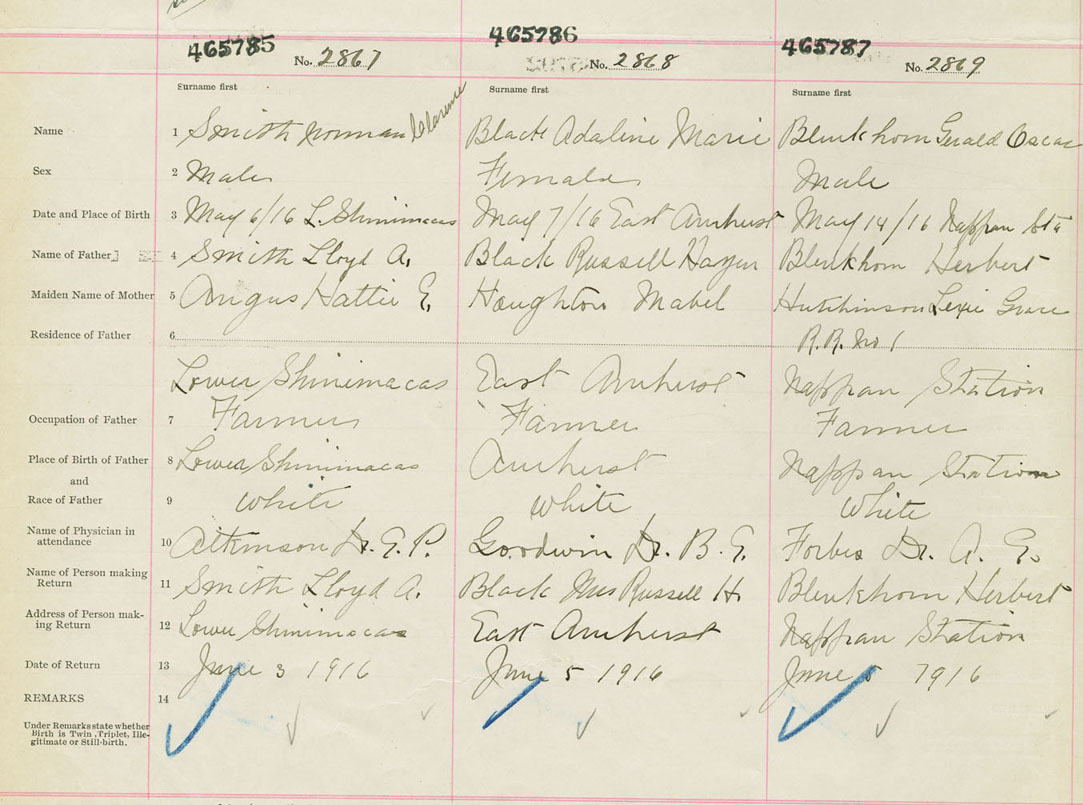 465785 465786 465787
No. 2867 No. 2868 No. 2869
Surname first Surname first Surname first
Name 1 Smith Norman Clarence Black Adaline Marie Blenkhorn Gerald Oscar
Sex 2 Male Female Male
Date and Place of Birth 3 May 6/16 L. Shinimacas May 7/16 East Amherst May 14/16 Nappan Sta
Name of Father 4 Smith Lloyd A. Black Russell Blenkhorn Herbert
Maiden Name of Mother 5 Angus Hattie E. Houghton Mabel Hutchinson Lexie Grace
Residence of Father 6 R.R. No 1
Lower Shinimacas East Amherst Nappan Station
Occupation of Father 7 Farmer Farmer Farmer
Place of Birth of Father 8 Lower Shinimacas Amherst Nappan Station
and
Race of Father 9 White White White
Name of Physician in
attendance 10 Atkinson Dr. E. P. Goodwin Dr. B. E. Forbes Dr. A. E.
Name of Person making
Return 11 Smith Lloyd A. Black Mrs Russell H. Blenkhorn Herbert
Address of Person mak-
ing Return 12 Lower Shinimacas East Amherst Nappan Station
Date of Return 13 June 3 1916 June 5 1916 June 5 1916
REMARKS 14
Under Remarks state whether
Birth is Twin, Triplet, Ille-
gitimate or Still-birth.